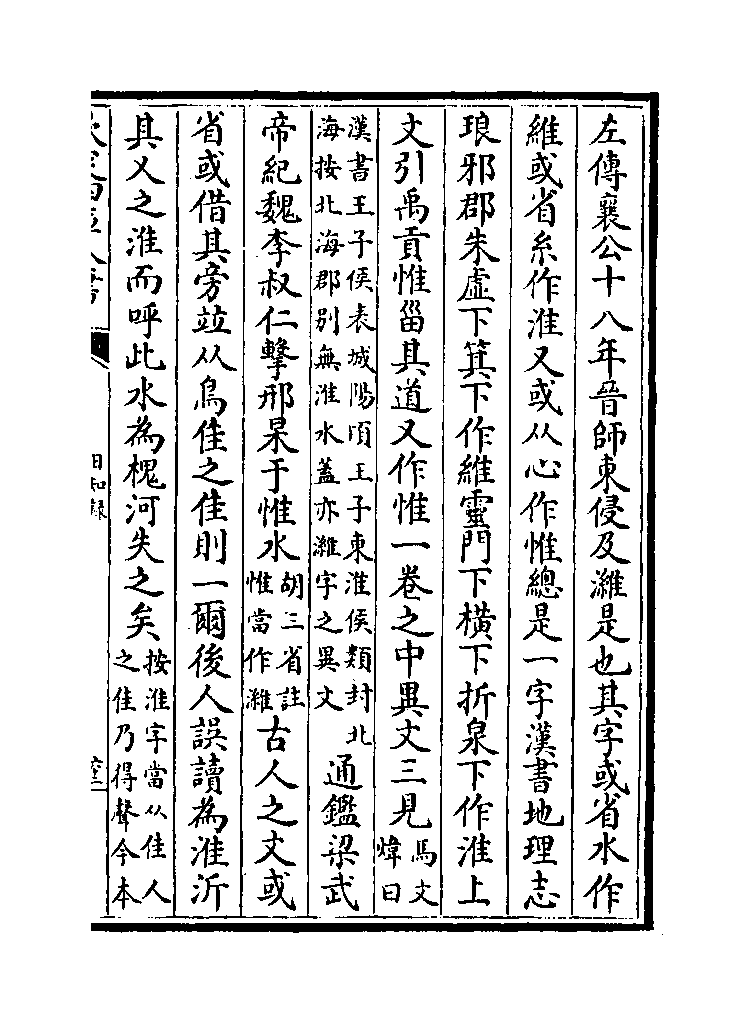 左傳襄公十八年晉師東侵及濰是也其字或省水作
維或省糸作淮又或从心作惟總是一字漢書地理志
琅邪郡朱虛下箕下作維靈門下橫下折泉下作淮上
文引禹貢惟甾其道又作惟一卷之中異文三見馬文
煒曰
漢書王子侯表城陽頃王子東淮侯類封北
海按北海郡別無淮水蓋亦濰字之異文
通鑑梁武
帝紀魏李叔仁擊邢杲于惟水
胡三省註
惟當作濰
古人之文或
省或借其旁竝从鳥隹之隹則一爾後人誤讀為淮沂
其乂之淮而呼此水為槐河失之矣
按淮字當从佳人
之佳乃得聲今本
欽定四庫全書
日知錄